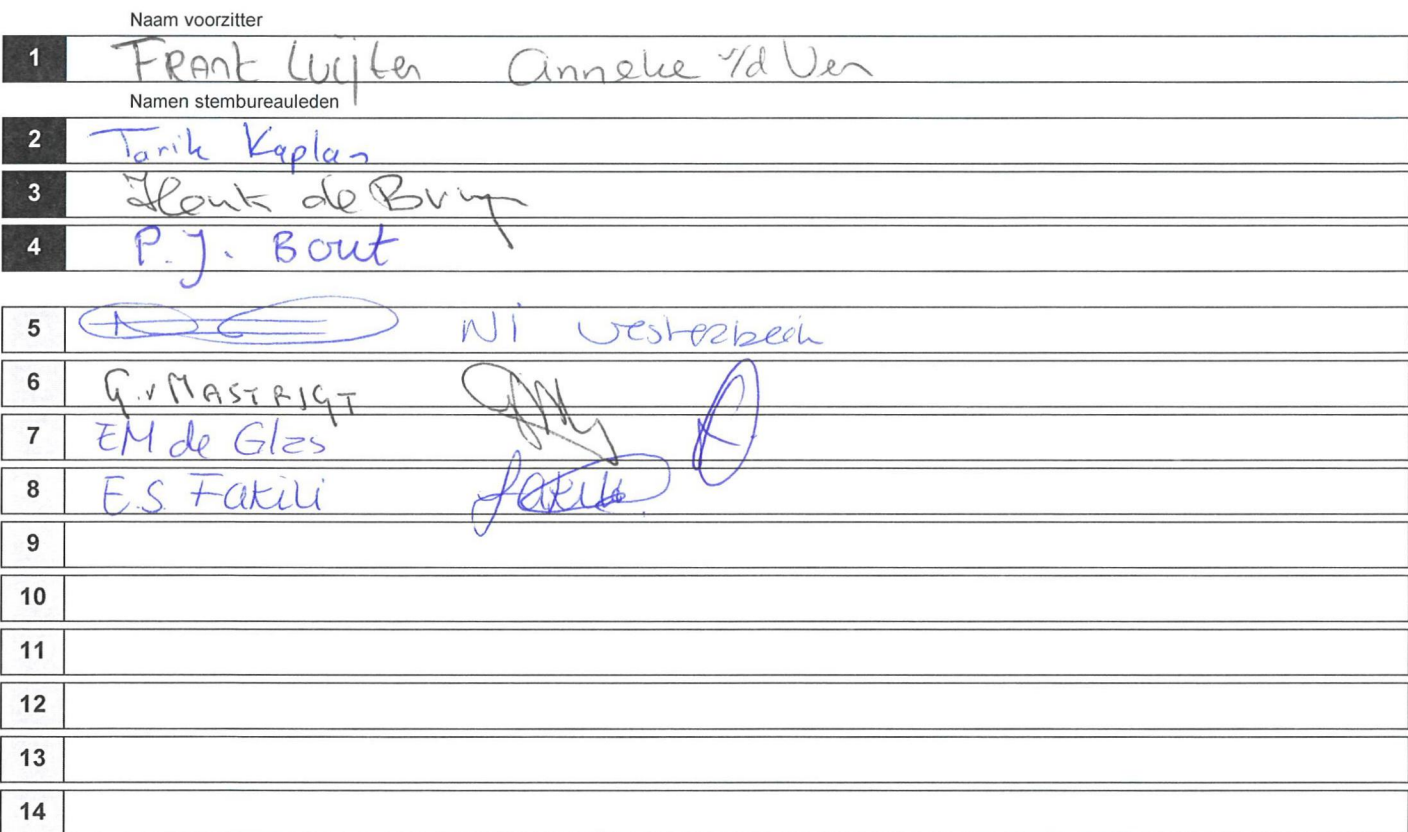 Naam voorzitter
1 FRANK Luijten Anneke v/d Ven
Namen stembureauleden
2 Tarik Kaplan
3 Henk de Bruyn
4 P.J. Bout
5 NI Westerbeek
6 G.v MASTRIGT
7 EM de Glas
8 E.S. Fakili
9
10
11
12
13
14